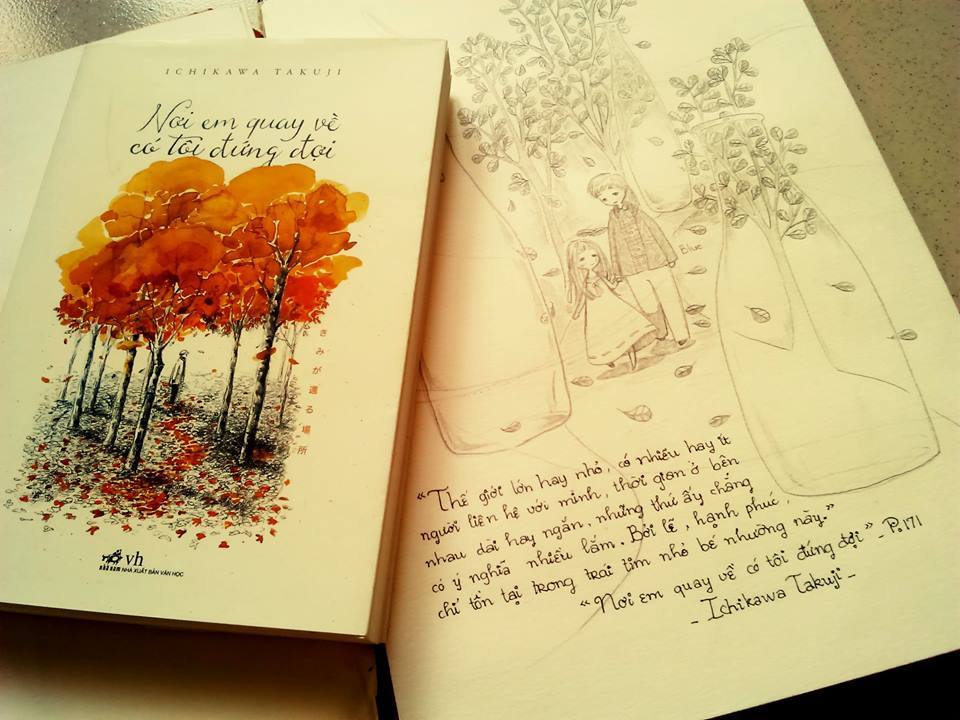 ICHIKAWA TAKUJI
Nơi em quay về
có tôi đứng đợi
きみが還る場所
vh
nhã nam NHÀ XUẤT BẢN VĂN HỌC
Blue
“Thế giới lớn hay nhỏ, có nhiều hay ít
người liên hệ với mình, thời gian ở bên
nhau dài hay ngắn, những thứ ấy chẳng
có ý nghĩa nhiều lắm. Bởi lẽ, hạnh phúc
chỉ tồn tại trong trái tim nhỏ bé nhường này.”
“Nơi em quay về có tôi đứng đợi” - P.171
- Ichikawa Takuji -